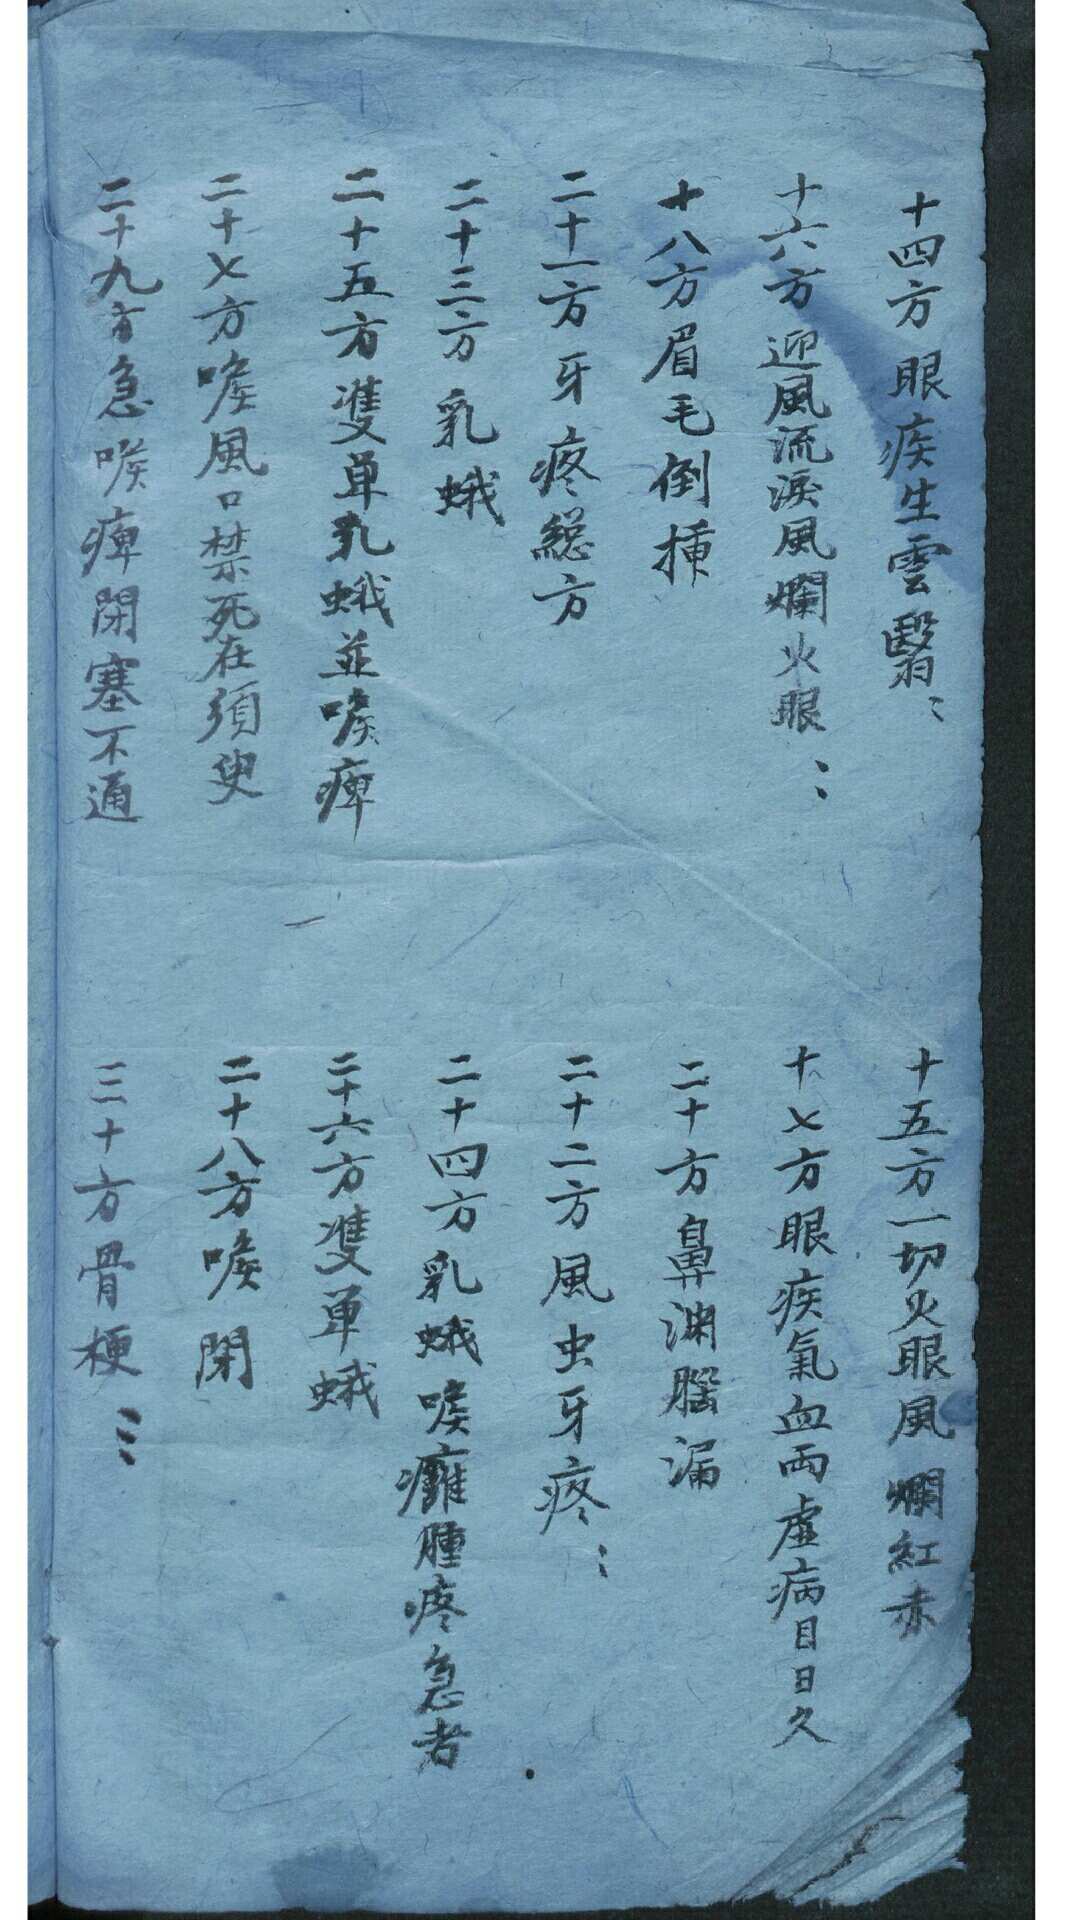 十四方眼疾生雲翳
十五方一切火眼風爛紅赤
十六方迎風流淚風爛火眼
十七方眼疾氣血両虛病目日久
十八方眉毛倒插
二十方鼻渊腦漏
二十一方牙疼總方
二十二方風虫牙疼
二十三方乳蛾
二十四方乳蛾喉癰腫疼急者
二十五方雙单乳蛾並喉痺
二十六方雙单蛾
二十七方喉風口禁死在須臾
二十八方喉閉
二十九方急喉痺閉塞不通
三十方骨梗